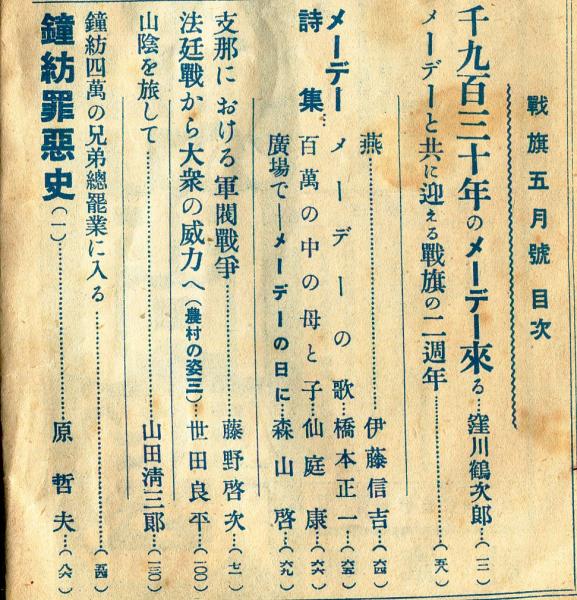 戰旗五月號 目次
千九百三十年のメーデー來る…窪川鶴次郎…(一二)
メーデーと共に迎える戰旗の二週年………(五八)
メーデー詩集…
燕………伊藤信吉…(六四)
メーデーの歌…橋本正一…(六五)
百萬の中の母と子…仙庭康…(六六)
廣場で——メーデーの日に…森山啓…(六九)
支那における軍閥戰爭………藤野啓次…(七一)
法廷戰から大衆の威力へ(農村の姿三)…世田良平…(一〇〇)
山陰を旅して………山田淸三郎…(一三〇)
鐘紡四萬の兄弟總罷業に入る………(五四)
鐘紡罪惡史(一)………原哲夫…(八六)